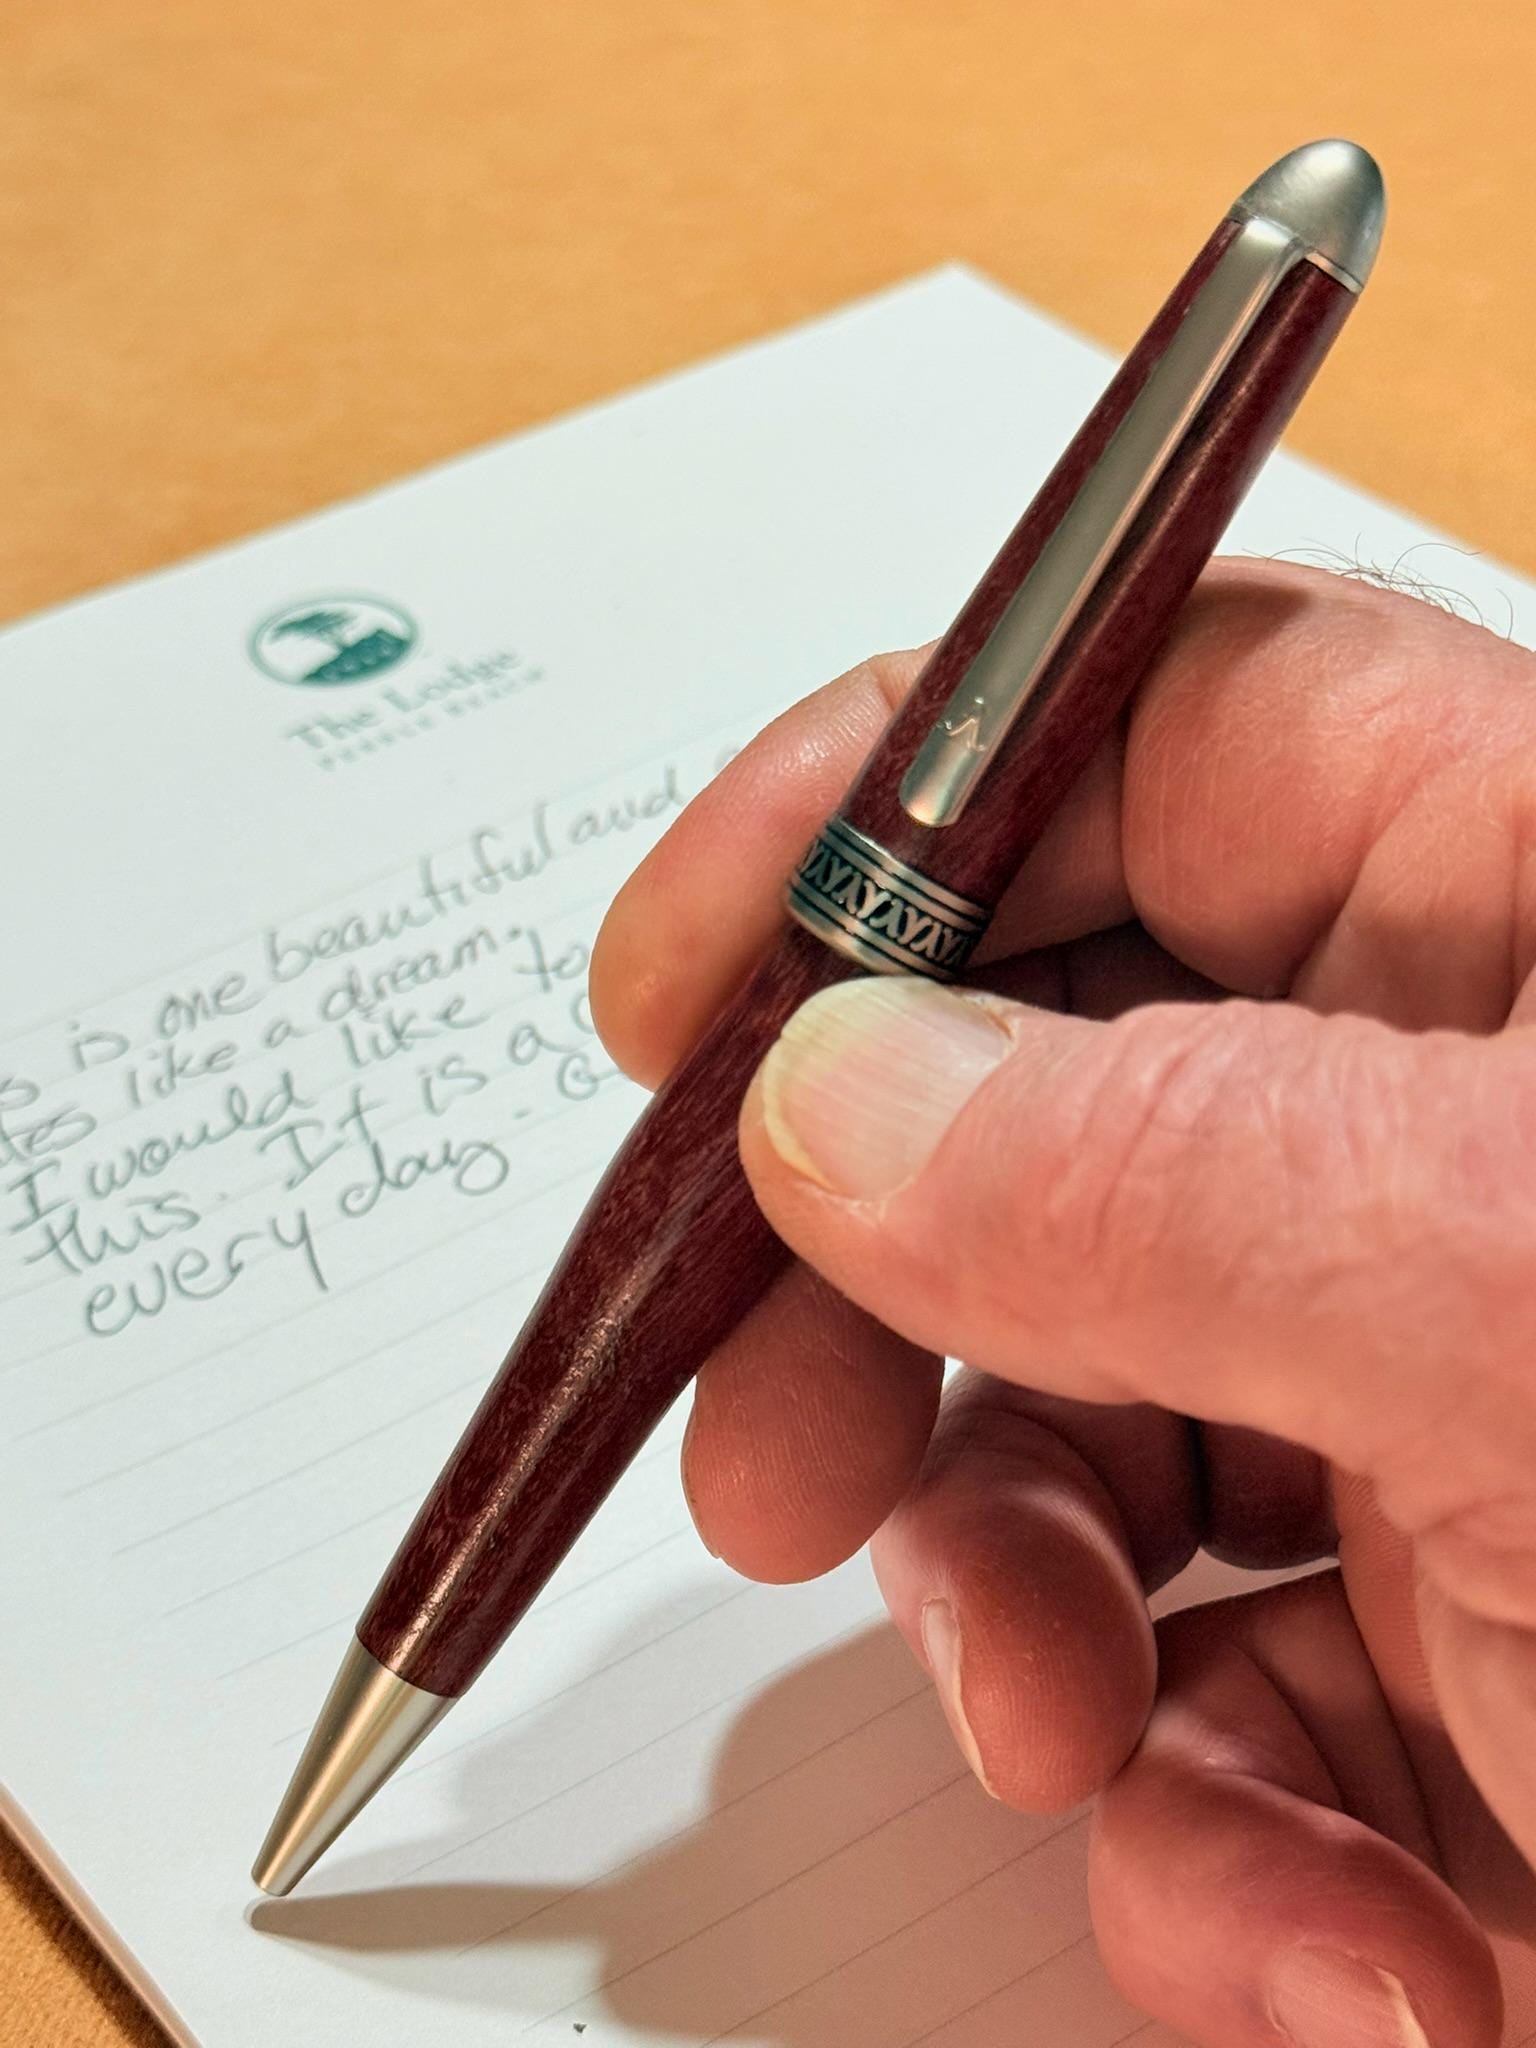 The Lodge
PEBBLE BEACH
is one beautiful and
like a dream.
I would like to
this. It is a
every day.